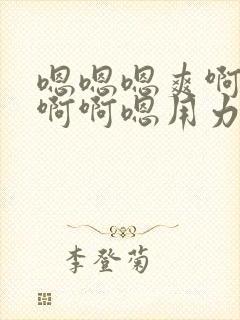 嗯嗯嗯爽啊
啊啊嗯用力
李登菊